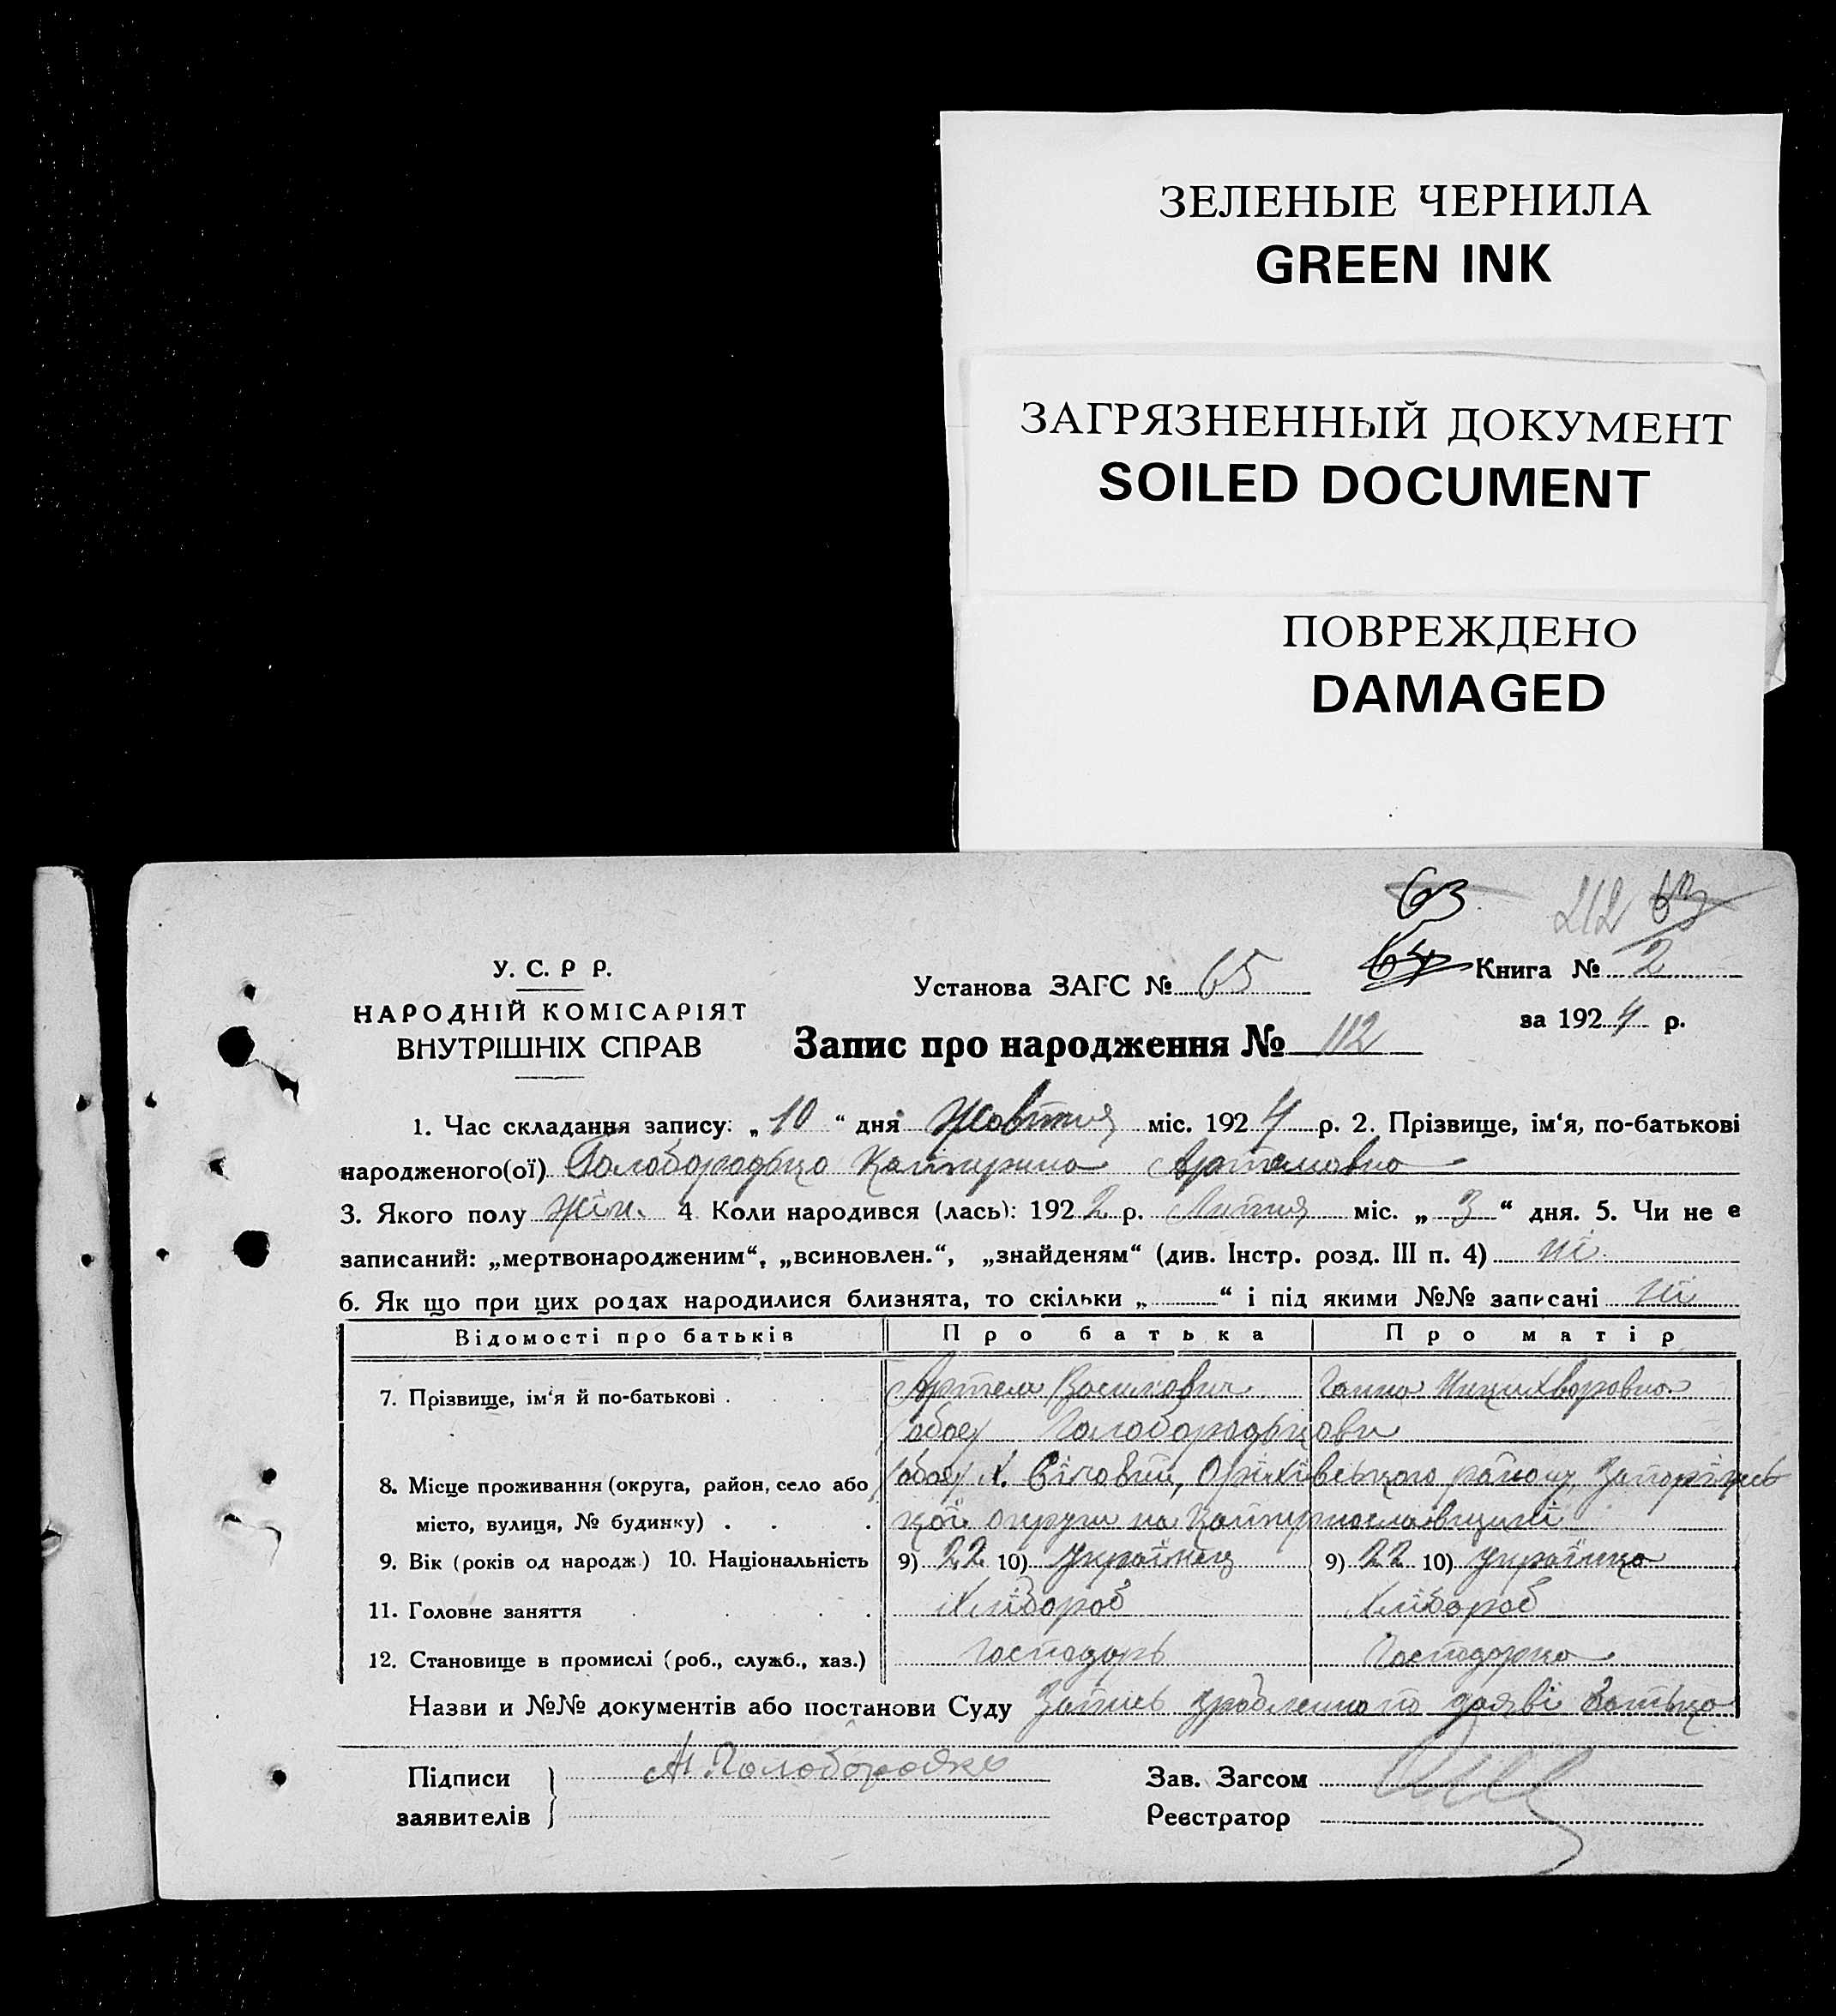 ЗЕЛЕНЫЕ ЧЕРНИЛА
GREEN INK
ЗАГРЯЗНЕННЫЙ ДОКУМЕНТ
SOILED DOCUMENT
ПОВРЕЖДЕНО
DAMAGED
63
212 63
У. С. Р Р.
Установа ЗАГС № 65
64 Книга № 2
НАРОДНІЙ КОМІСАРІЯТ
за 1924 р.
ВНУТРІШНІХ СПРАВ
Запис про народження № 112
1. Час складання запису: „10“ дня Жовтня міс. 1924 р. 2. Прізвище, ім‘я, по-батькові
народженого(ої) Голобородько Катирина Артемовна
3. Якого полу жін. 4 Коли народився (лась): 1922 р. міс. „3“ дня. 5. Чи не є
записаний: „мертвонародженим“, „всиновлен.“, „знайденям“ (див. Інстр. розд. III п. 4) ні
6. Як що при цих родах народилися близнята, то скільки „ “ і під якими №№ записані ні
Відомості про батьків Про батька Про матір
7. Прізвище, ім‘я й по-батькові . Артем Василович Ганна
обоє Голобородькови
8. Місце проживання (округа, район, село або обоє х. Оріхівського району, Запоріжсь
місто, вулиця, № будинку) . . . кої округи на Катиринославщині
9. Вік (років од народж.) 10. Національність 9) 22 10) Українець 9) 22 10) Українка
11. Головне заняття . . . . Хлібороб Хлібороб
12. Становище в промислі (роб., служб., хаз.) Господарь Господарка
Назви и №№ документів або постанови Суду Запись зроблено по заяві батька
Підписи А. Голобородко Зав. Загсом
заявителів Реєстратор